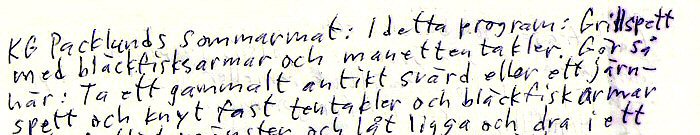 KG Packlunds sommarmat: I detta program: Grillspett
med bläckfisksarmar och manettentakler. Gör så
här: Ta ett gammalt antikt svärd eller ett järn-
spett och knyt fast tentakler och bläckfiskarmar
och låt ligga och dra i ett